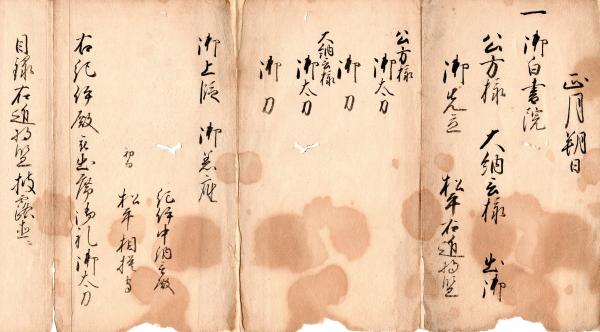 正月朔日
一 御白書院
公方様 大納言様 出御
御先立 松平右近将監
公方様
御太刀
御刀
大納言様
御太刀
御刀
御上段 御着座
紀伊中納言殿
松平相模守
右紀伊殿 出席御礼御太刀
目録右近将監披露